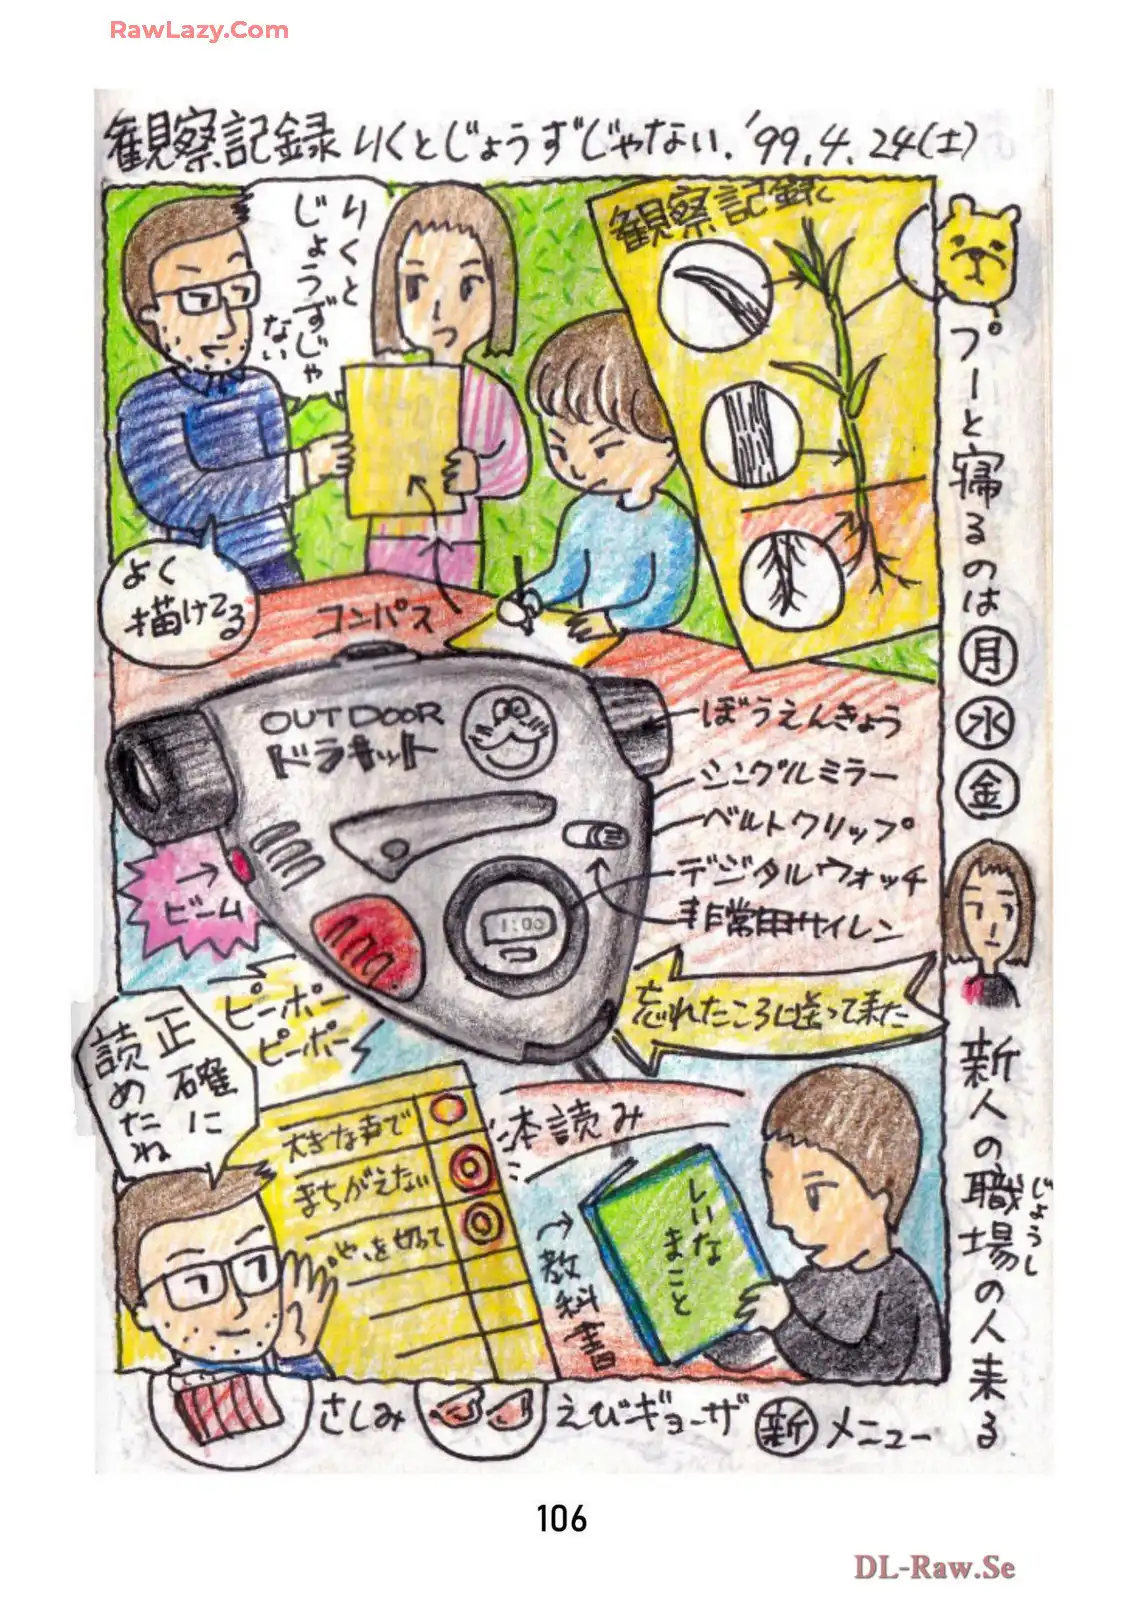 RawLazy.Com
観察記録 りくとじょうずじゃない. '99.4.24(土)
りくと
じょうずじゃ
ない
観察記録
よく
描けてる
コンパス
OUTDOOR
ドラキット
ぼうえんきょう
シングルミラー
ベルトクリップ
デジタルウォッチ
非常用サイレン
1:00
→
ビーム
ピーポー
ピーポー
忘れたころに送って来た
正確に
読めたね
大きな声で
まちがえない
心を切って
本読み
→教科書
しいな
まこと
プーと寝るのは月水金
新人の職場の人来る
じょうし
さしみ
えびギョーザ
新メニュー
106
DL-Raw.Se